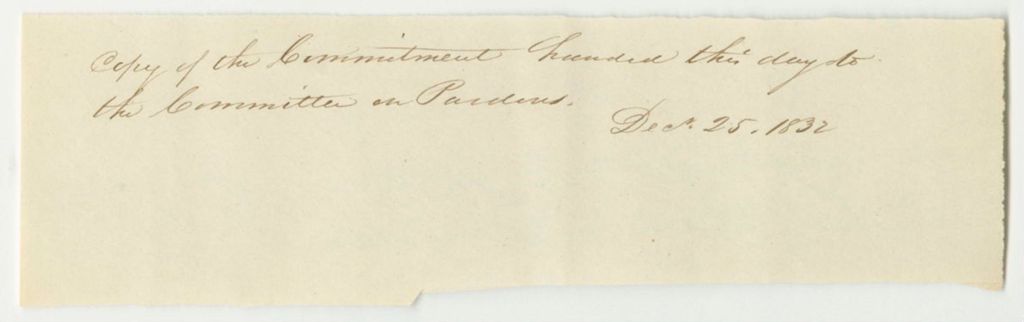 Copy of the Commitment handed this day to
the Committee on Pardons.
Decr. 25. 1832